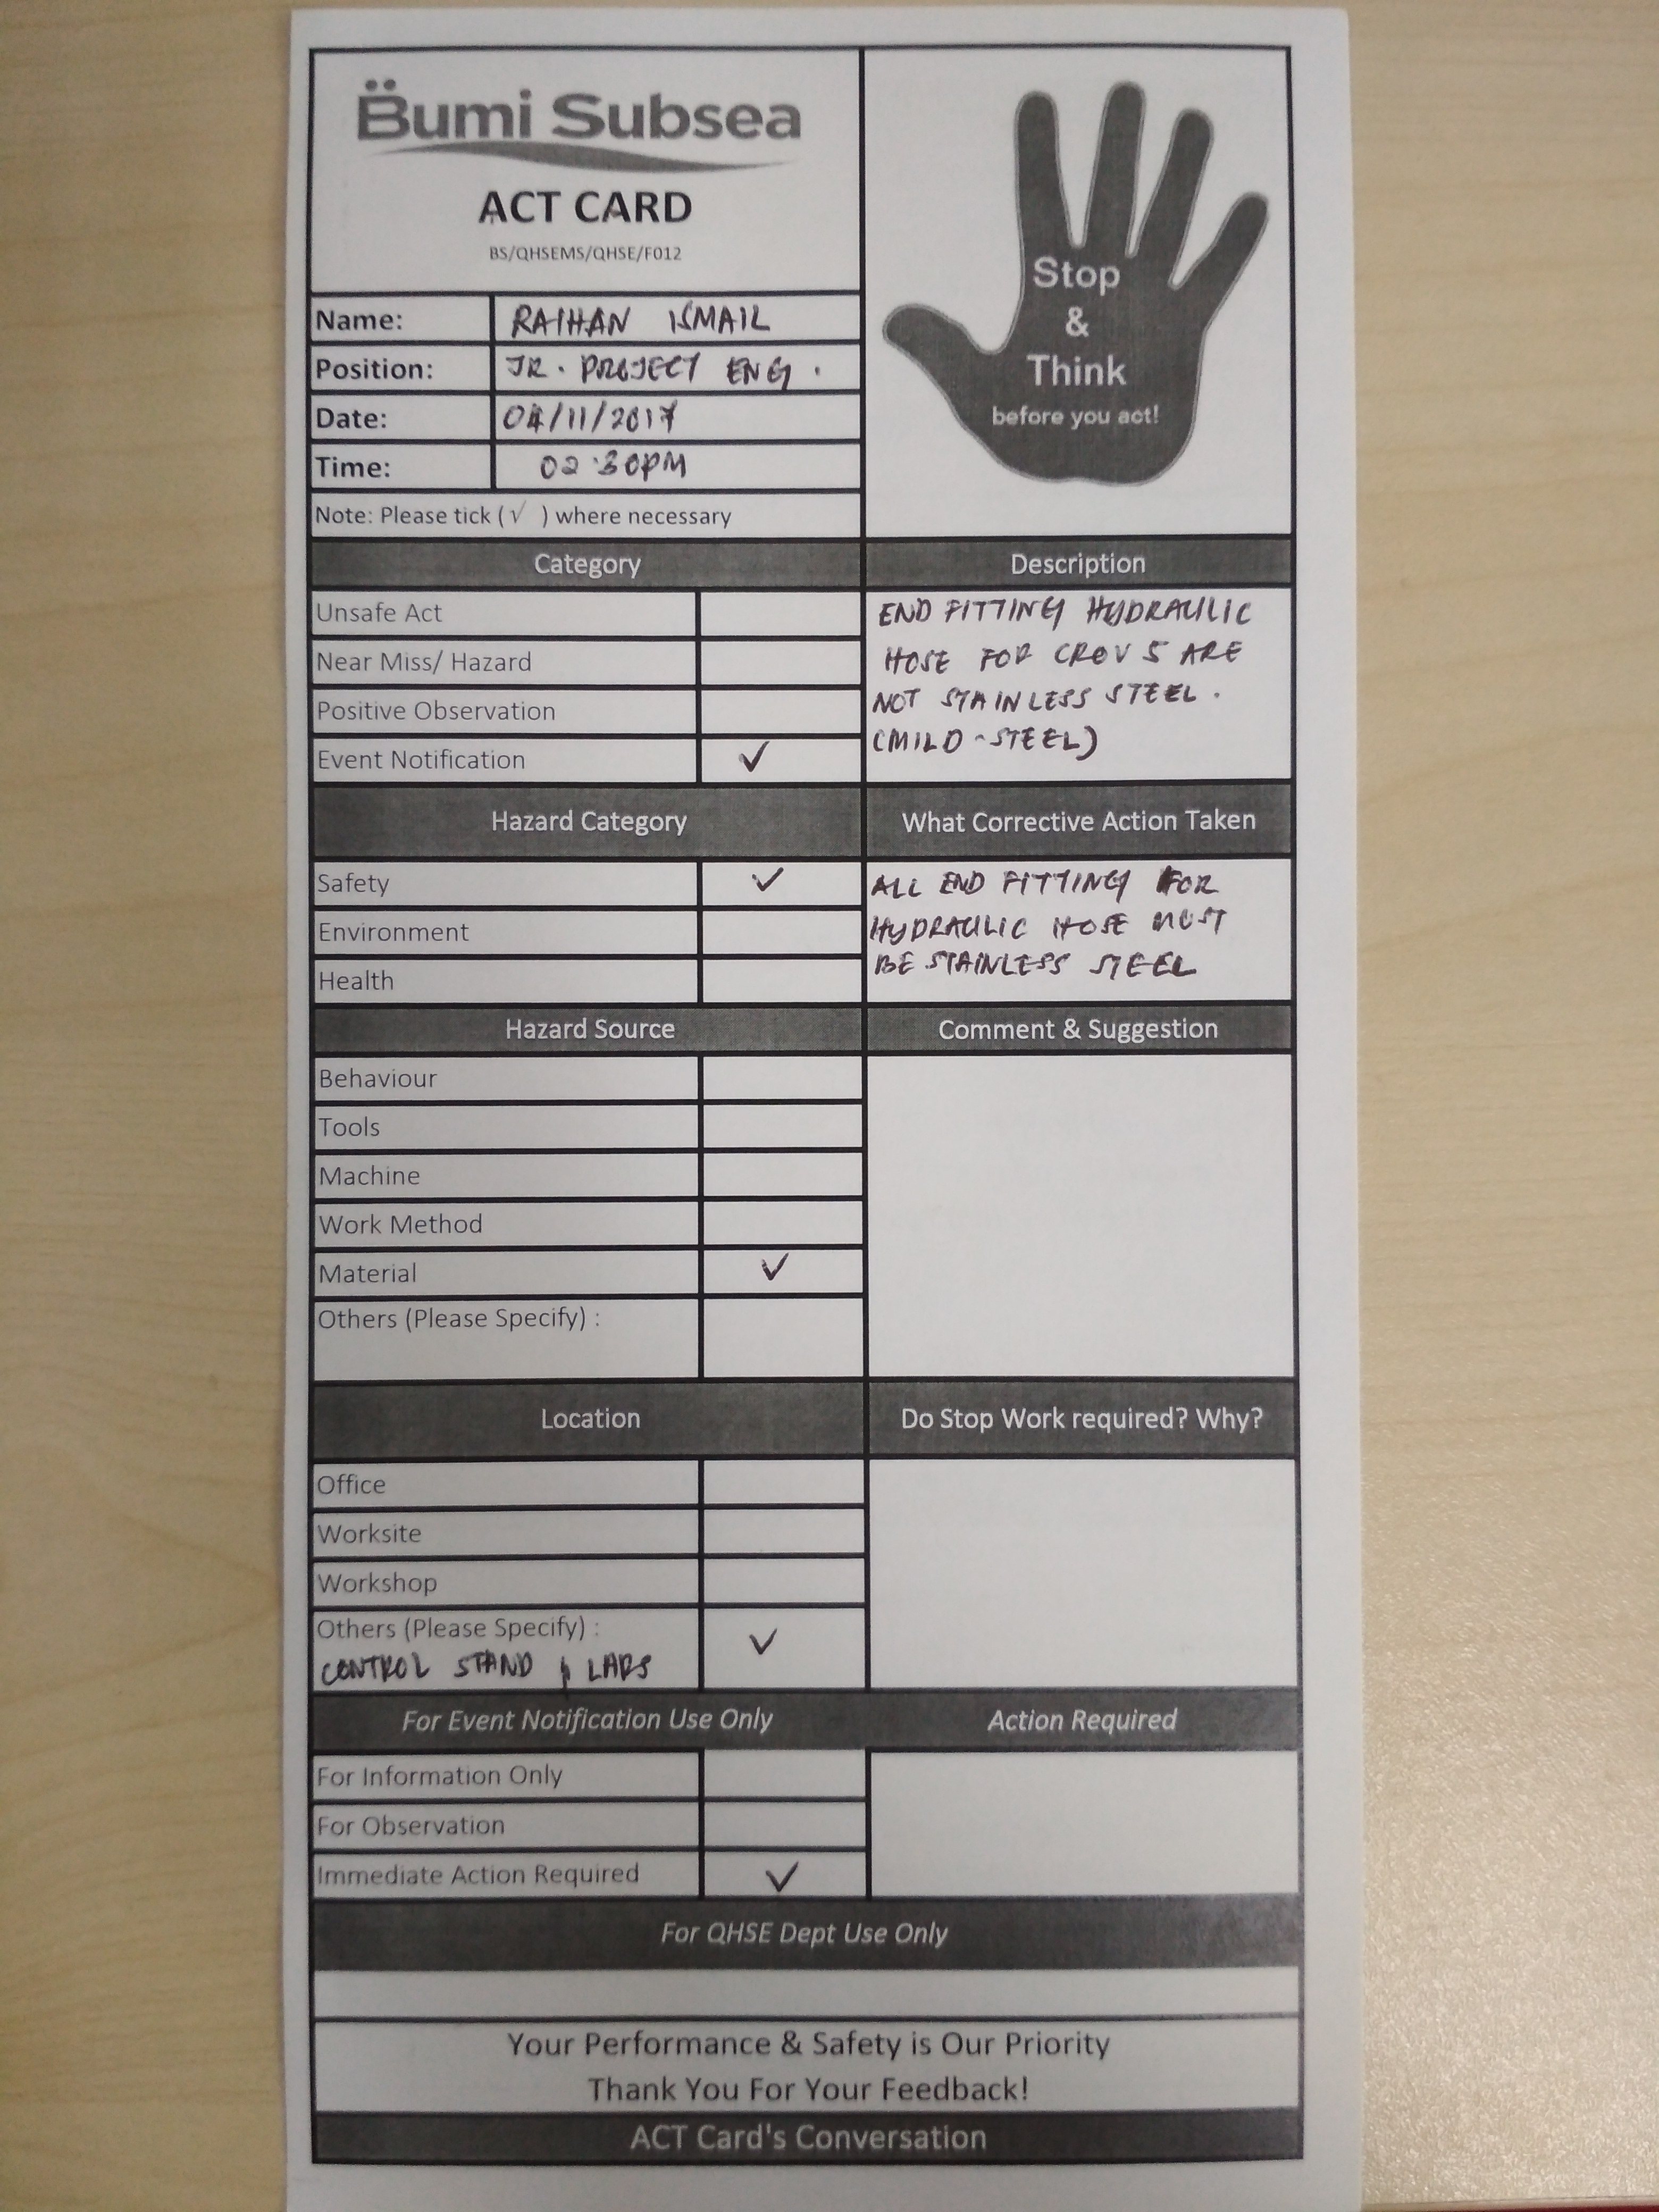 Bumi Subsea
ACT CARD
BS/QHSEMS/QHSE/F012
Stop
&
Think
before you act!
Name: RAIHAN ISMAIL
Position: JR. PROJECT ENG.
Date: 04/11/2017
Time: 02:30PM
Note: Please tick (√ ) where necessary
Category
Unsafe Act
Near Miss/ Hazard
Positive Observation
Event Notification ✓
Description
END FITTING HYDRAULIC
HOSE FOR CROV 5 ARE
NOT STAINLESS STEEL.
(MILD-STEEL)
Hazard Category
Safety ✓
Environment
Health
What Corrective Action Taken
ALL END FITTING FOR
HYDRAULIC HOSE MUST
BE STAINLESS STEEL
Hazard Source
Behaviour
Tools
Machine
Work Method
Material ✓
Others (Please Specify) :
Comment & Suggestion
Location
Office
Worksite
Workshop
Others (Please Specify) : ✓
CONTROL STAND & LARS
Do Stop Work required? Why?
For Event Notification Use Only
For Information Only
For Observation
Immediate Action Required ✓
Action Required
For QHSE Dept Use Only
Your Performance & Safety is Our Priority
Thank You For Your Feedback!
ACT Card's Conversation